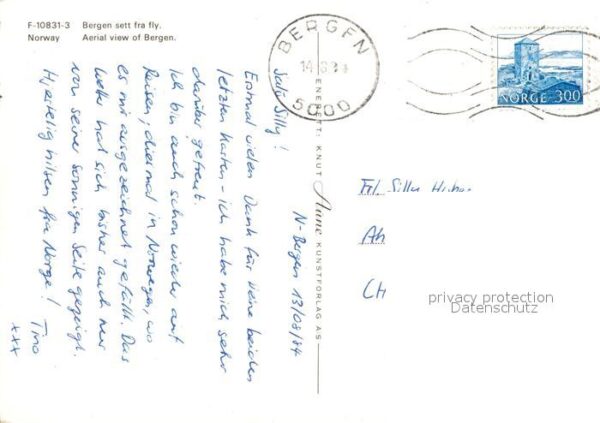 F-10831-3 Bergen sett fra fly.
Norway Aerial view of Bergen.
BERGEN
5000
NORGE 300
ENERETT: KNUT Aune KUNSTFORLAG AS
N-Bergen 13/08/84
Silly!
Erstmal vielen Dank für Deine beiden
letzten Karten - ich habe mich sehr
darüber gefreut.
Ich bin auch schon wieder auf
Reisen, diesmal in Norwegen, wo
es mir ausgezeichnet gefällt. Das
hat sich bisher auch nur
von seiner sonnigen Seite gezeigt.
Hjertelig hilsen fra Norge!
Tino
xxx
Frl. Silly
CH
privacy protection
Datenschutz